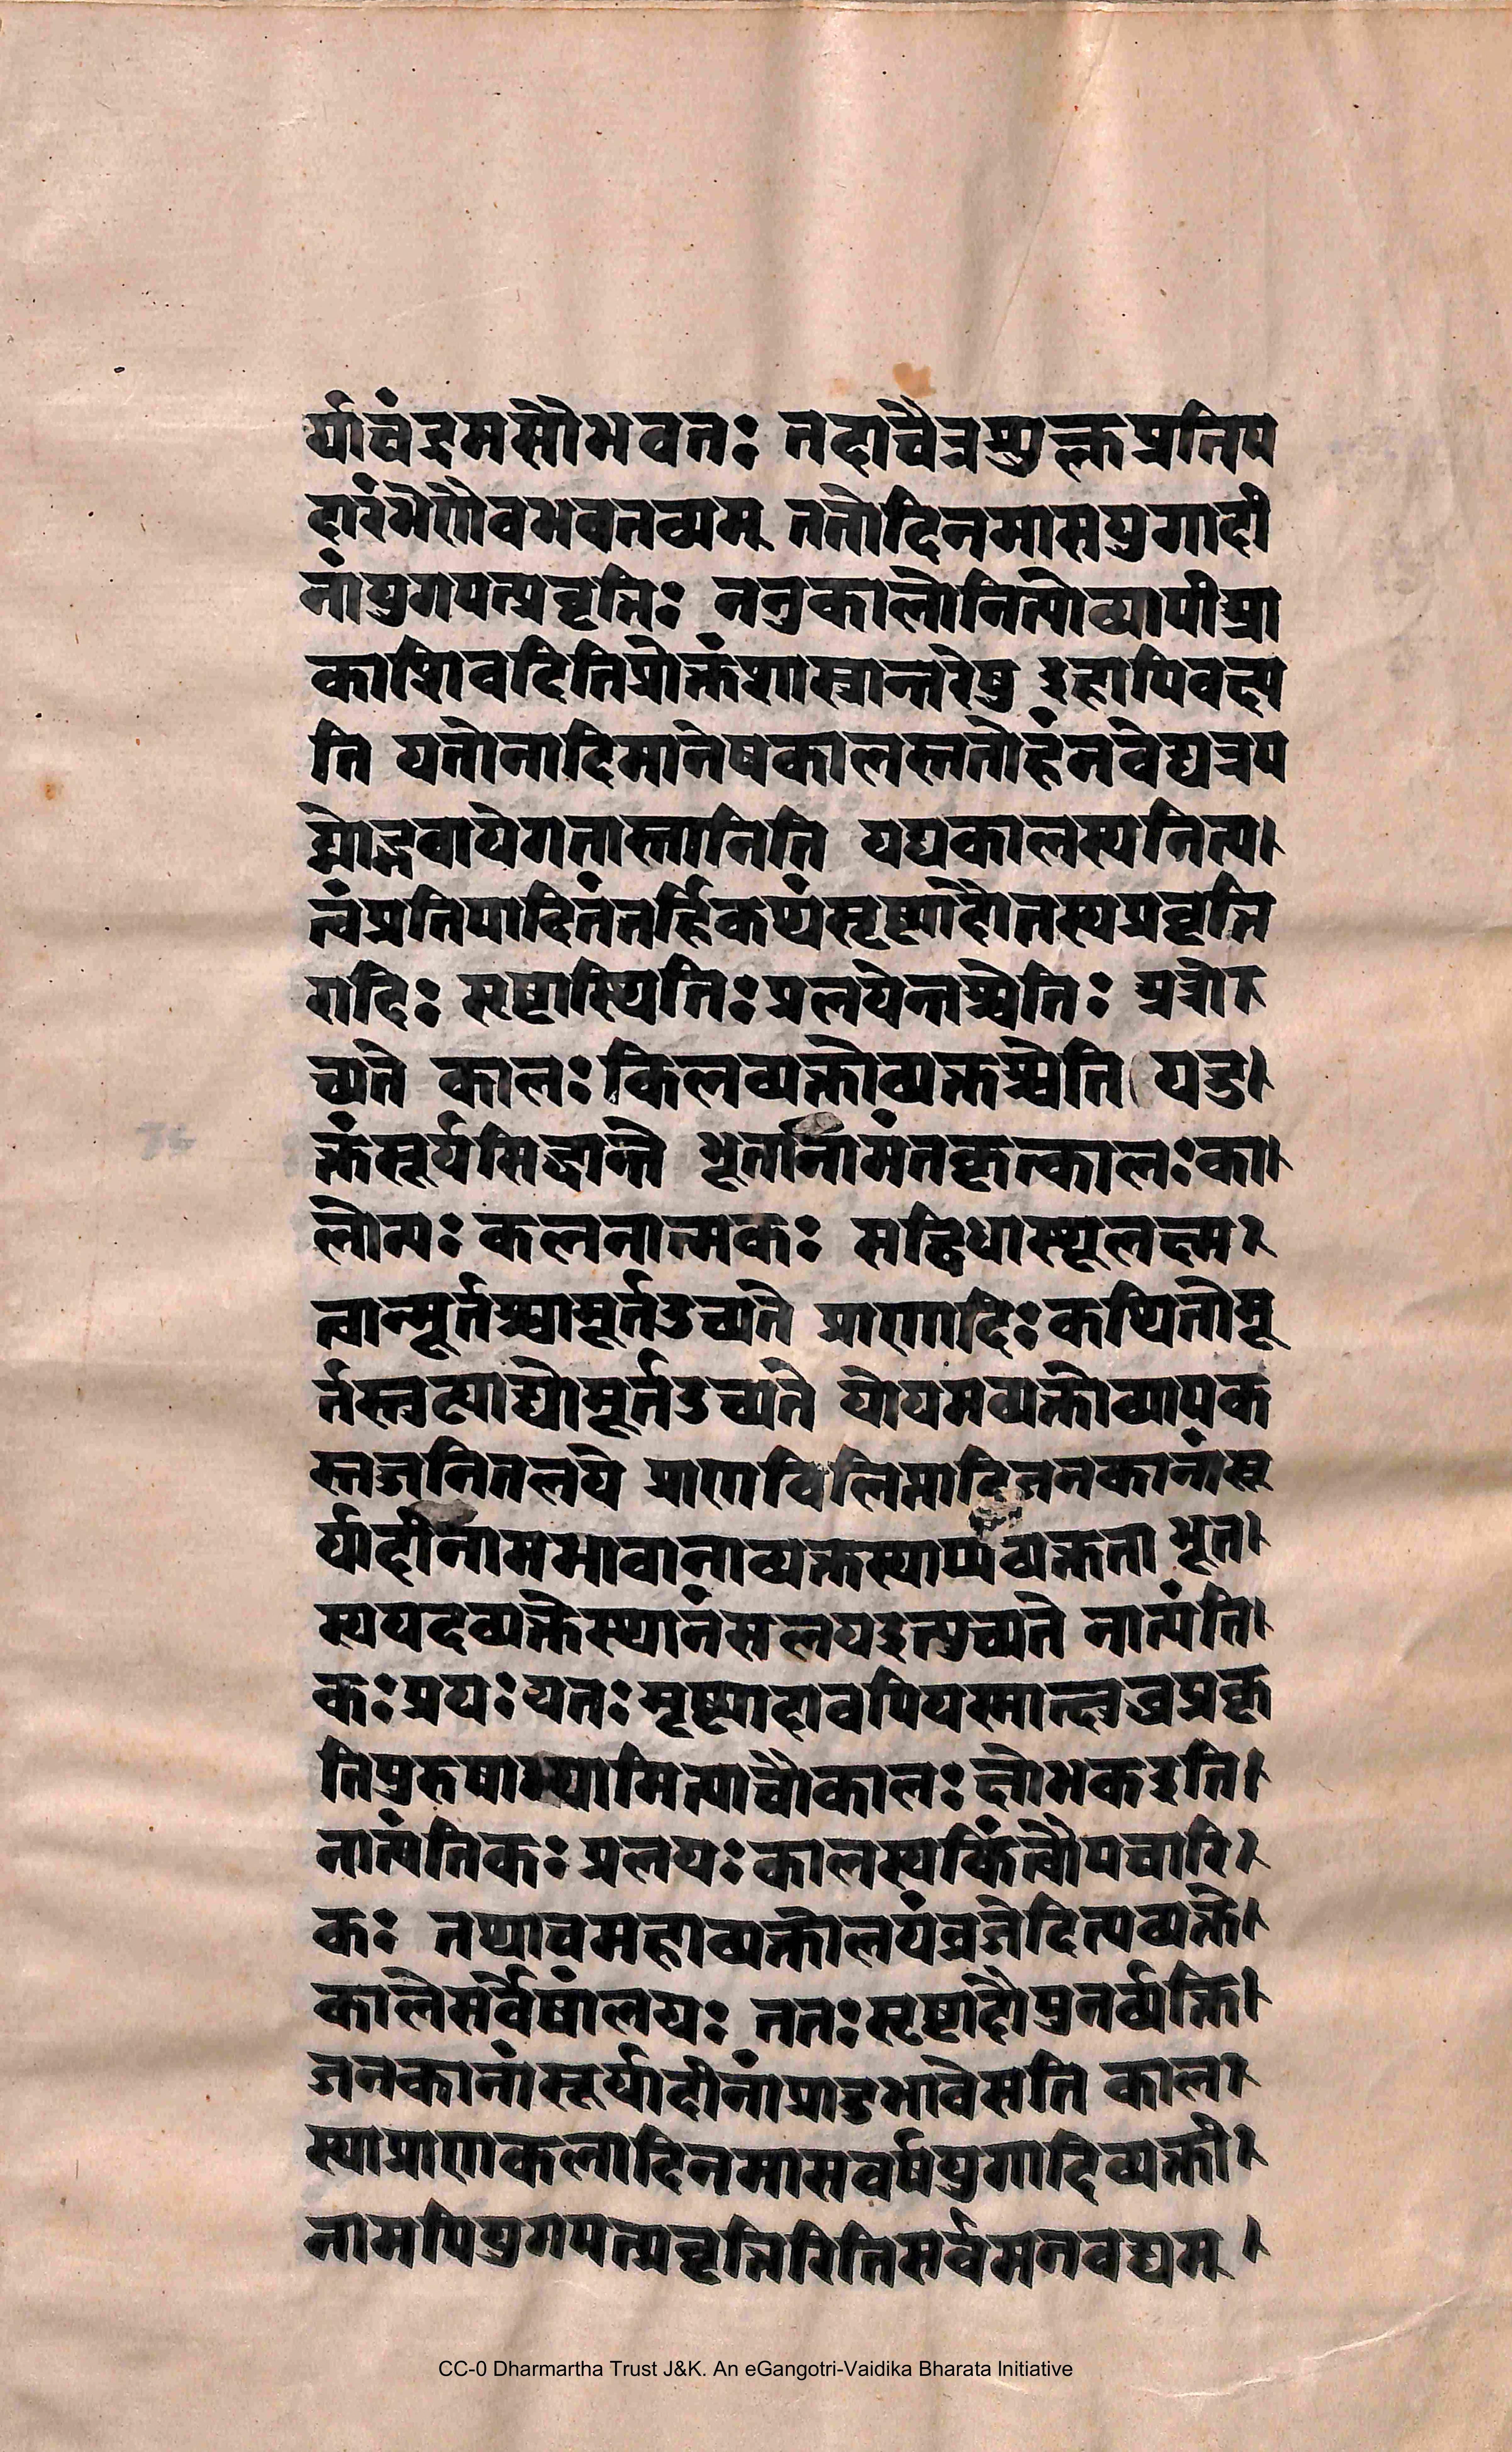 र्याचंद्रमसौभवतः तदाचैत्रशुक्लप्रतिप
दारंभेणैवभवतव्यम् ततोदिनमासयुगादी
नांयुगपत्प्रवृत्तिः ननुकालोनित्योव्यापीआ
काशोवदितिप्रोक्तंशास्त्रान्तरेषु इहापिवक्ष्य
ति यतोनादिमानेषकालस्ततोहंनवेद्म्यत्रप
द्मोद्भवायेगतास्तानिति यद्यकालस्यनित्य।
त्वंप्रतिपादितंतर्हिकथंसृष्ट्यादौतस्यप्रवृत्ति
रादिः सृष्टास्थितिः प्रलयेन्तश्चेतिः अत्रोत
च्यते कालः किलव्यक्तोव्यक्तश्चेति यदु।
क्तंसूर्यसिद्धान्ते भूतानामंतकृत्कालः का।
लोन्यः कलनात्मकः सद्विधास्थूलक्ष्म।
त्वान्मूर्तश्चामूर्तउच्यते प्राणादिः कथितोमू
र्तस्त्रुट्याद्योमूर्तउच्यते योयमव्यक्तोव्यापक
स्तज्जनितलये प्राणविलिप्तादिजनकानांसू
र्यादीनामभावानाव्यक्तस्याप्यव्यक्तता भूत।
स्ययदव्यक्तेस्थानंसलयइत्युच्यते नात्यंति।
कः प्रयः यतः सृष्ट्यादावपियस्मात्क्षुब्धप्रकृ
तिपुरुषाभ्यामित्यादौकालः क्षोभकइति।
नात्यंतिकः प्रलयः कालस्यकिंत्वौपचारि।
कः तथाचमहाव्यक्तोलयंव्रजेदित्यव्यक्ते।
कालेसर्वेषांलयः ततः सृष्टादौपुनर्व्यक्ति।
जनकानांसूर्यादीनांप्रादुभावेसति काल।
स्याप्राणकलादिनमासवर्षयुगादिव्यक्ती।
नामपियुगपत्प्रवृत्तिरितिसर्वमनवद्यम्।
CC-0 Dharmartha Trust J&K. An eGangotri-Vaidika Bharata Initiative